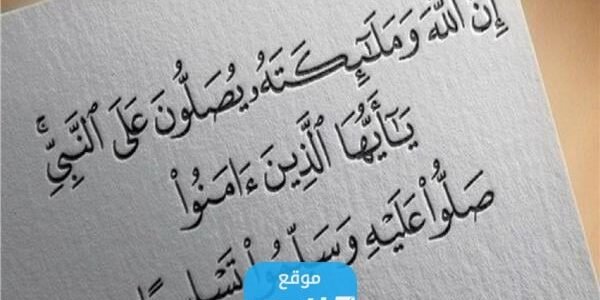 إِنَّ ٱللَّهَ وَمَلَـٰٓئِكَتَهُۥ يُصَلُّونَ عَلَى ٱلنَّبِىِّ ۚ
يَـٰٓأَيُّهَا ٱلَّذِينَ ءَامَنُوا۟
صَلُّوا۟ عَلَيْهِ وَسَلِّمُوا۟ تَسْلِيمًا
موقع